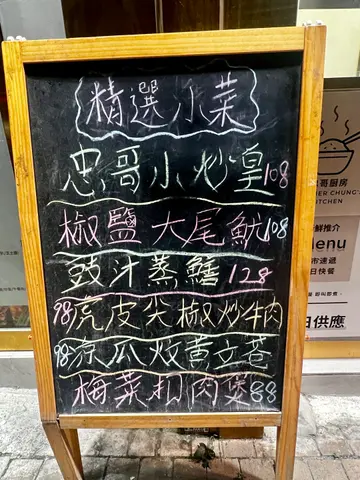 精選小菜
忠哥小炒皇108
椒鹽大尾魷108
豉汁蒸鱔128
98虎皮尖椒炒牛肉
98涼瓜炆黃立倉
梅菜扣肉煲88
哥厨房
CHUNG'S
KITCHEN
鮮推介
Menu
市速遞
日快餐
日供應